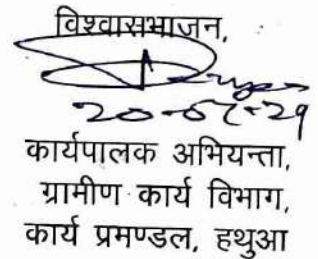 विश्वासभाजन,
कार्यपालक अभियन्ता,
ग्रामीण कार्य विभाग,
कार्य प्रमण्डल, हथुआ